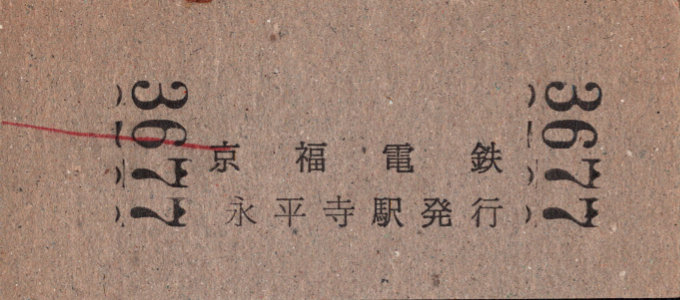 3677
京福電鉄
永平寺駅発行
3677